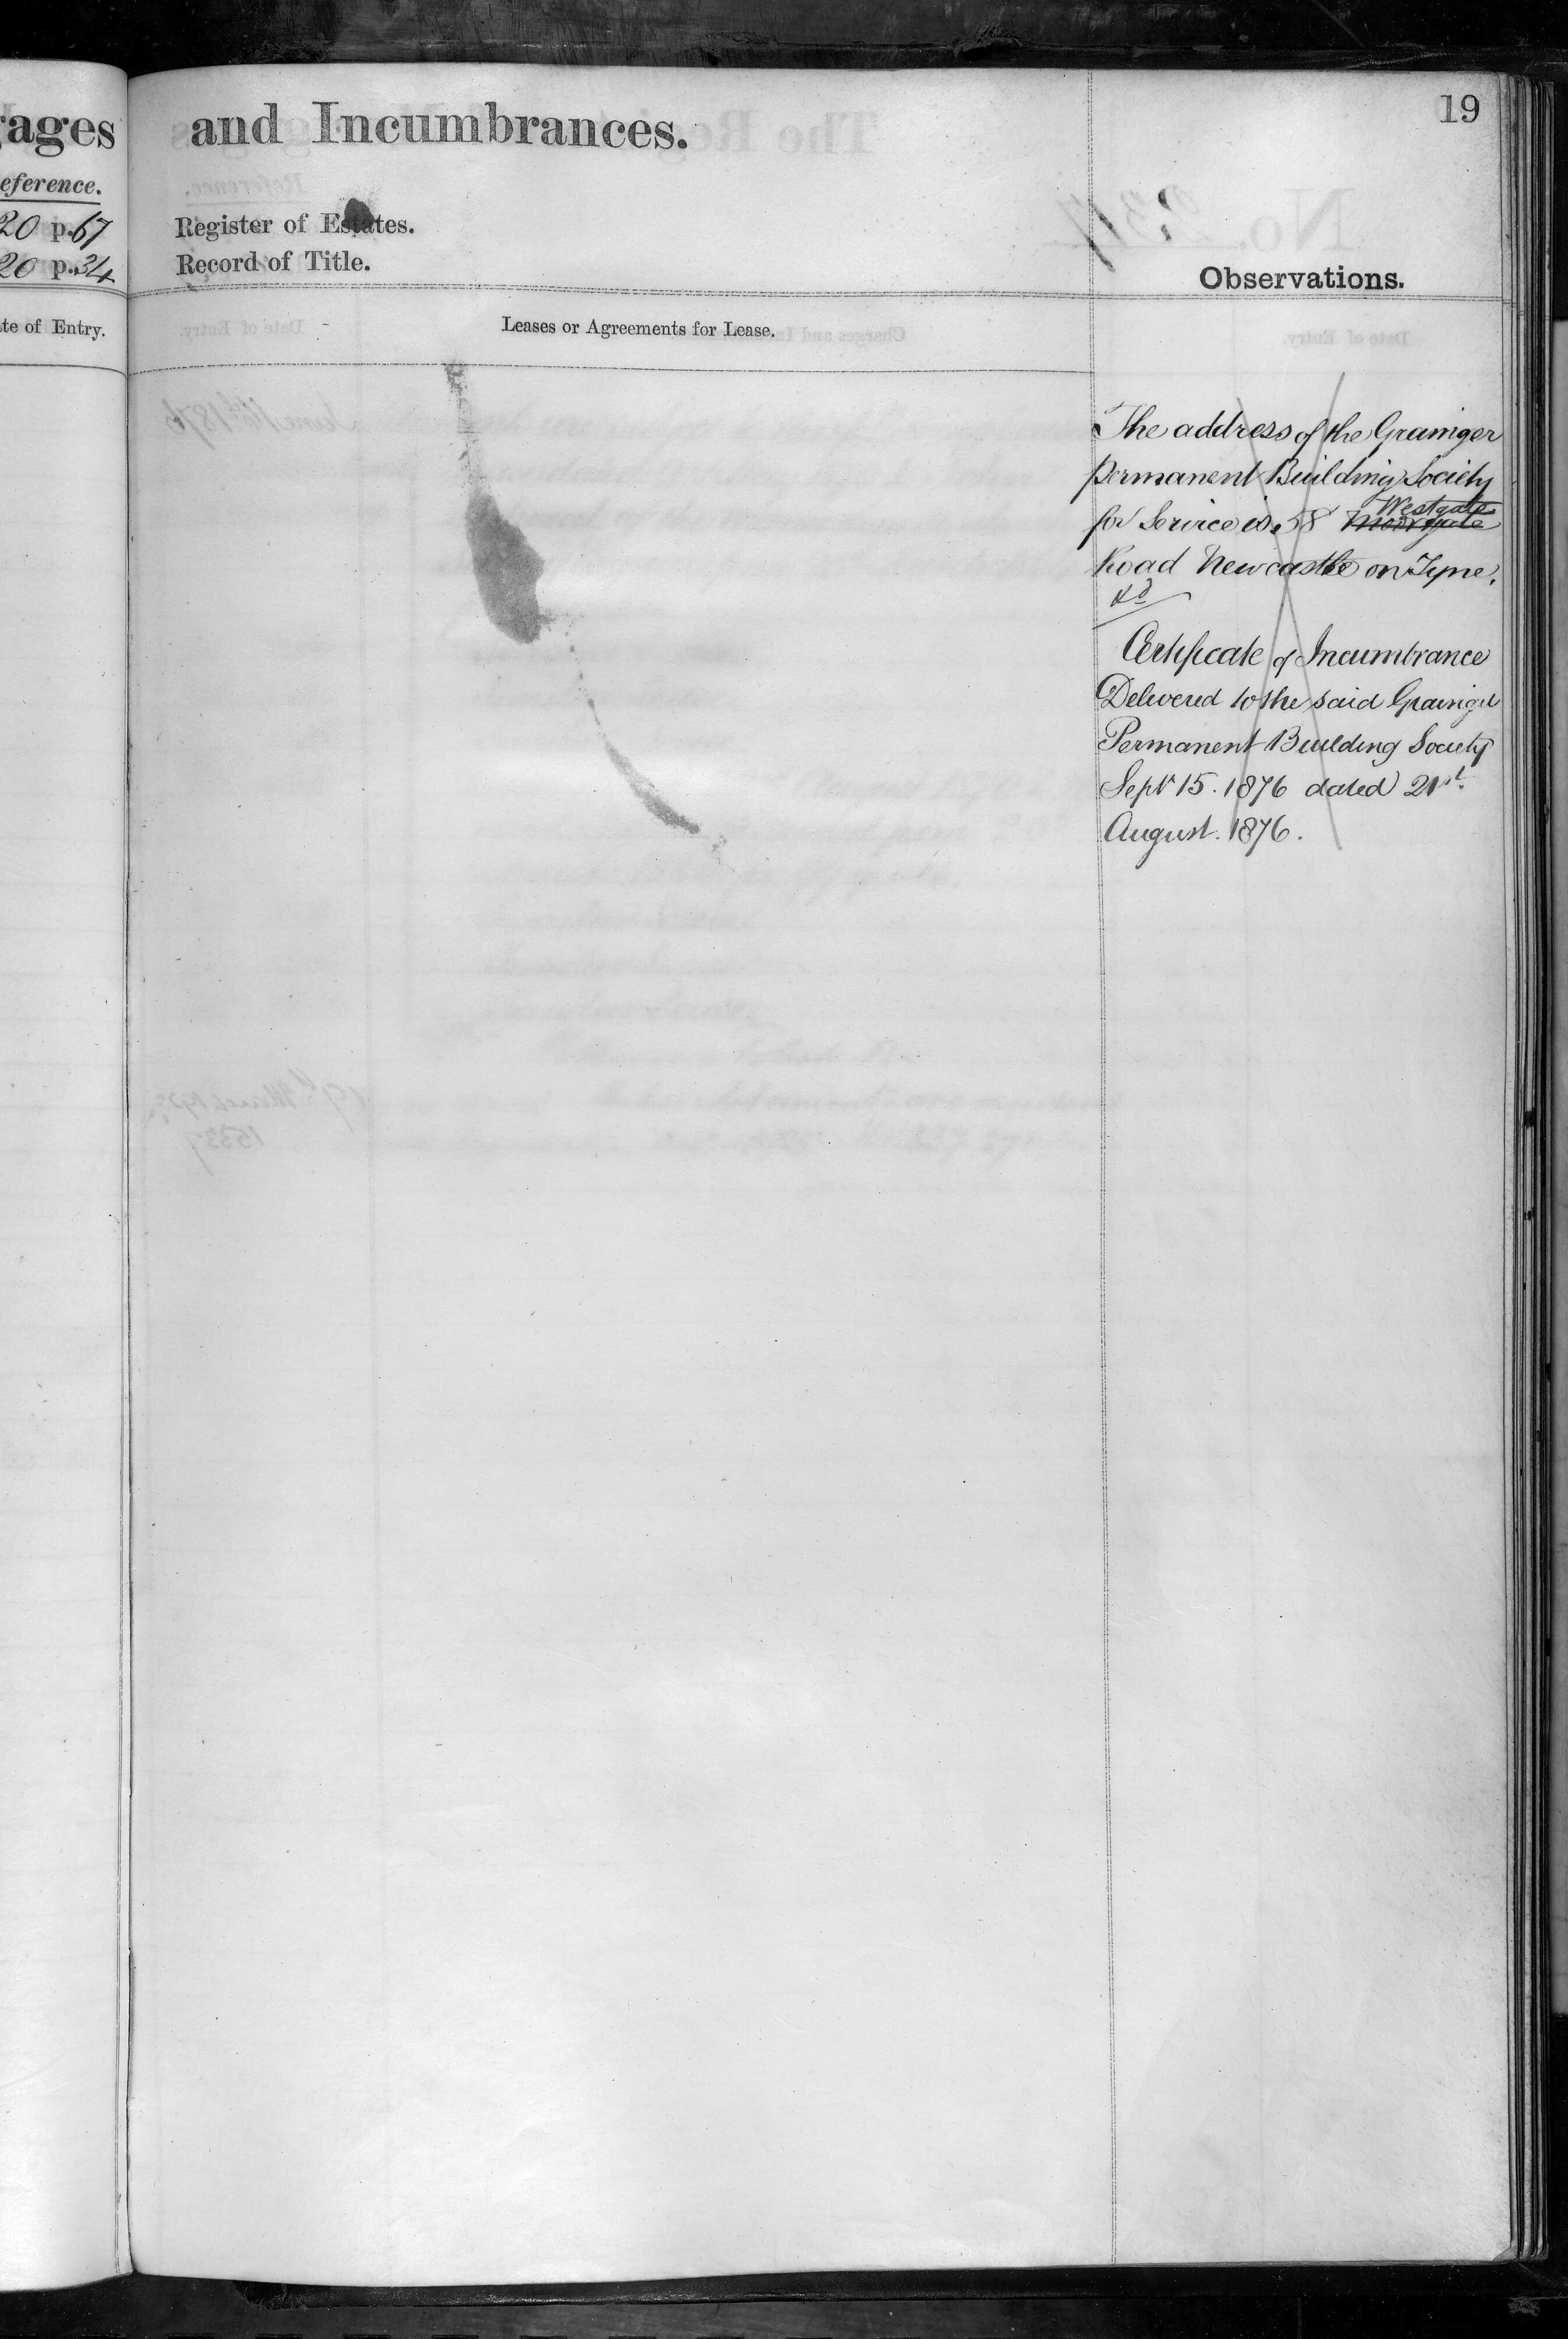 19
and Incumbrances.
Register of Estates.
Record of Title.
eference.
20 p. 67
20 p. 34
Observations.
te of Entry.
Leases or Agreements for Lease.
The address of the Grainger
Permanent Building Society
Westgate
for Service is 58 Moorgate
Road Newcastle on Tyne.
Certificate of Incumbrance
Delivered to the said Grainger
Permanent Building Society
Sept 15. 1876 dated 21st
August. 1876.